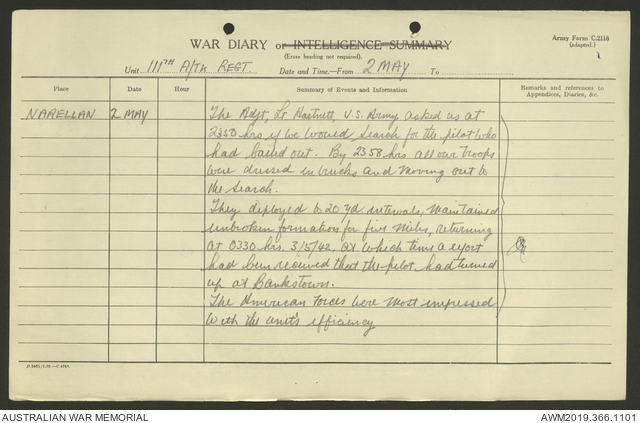 WAR DIARY or INTELLIGENCE SUMMARY
Army Form C.2118
(adapted.)
(Erase heading not required).
Unit 111TH A/TK REGT. Date and Time.—From 2 MAY To
Place Date Hour Summary of Events and Information Remarks and references to
Appendices, Diaries, &c.
NARELLAN 2 MAY The Adjt, Lt Hartnett, U.S. Army asked us at
2350 hrs if we would search for the pilot who
had bailed out. By 2358 hrs all our troops
were dressed in trucks and moving out to
the search.
They deployed to 20 yd. intervals, maintained
unbroken formation for five miles, returning
at 0330 hrs. 3/5/42. at which time a report
had been received that the pilot had turned
up at Bankstown.
The American forces were most impressed
with the unit's efficiency
AUSTRALIAN WAR MEMORIAL
AWM2019.366.1101